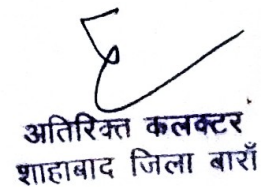 अतिरिक्त कलक्टर
शाहाबाद जिला बाराँ